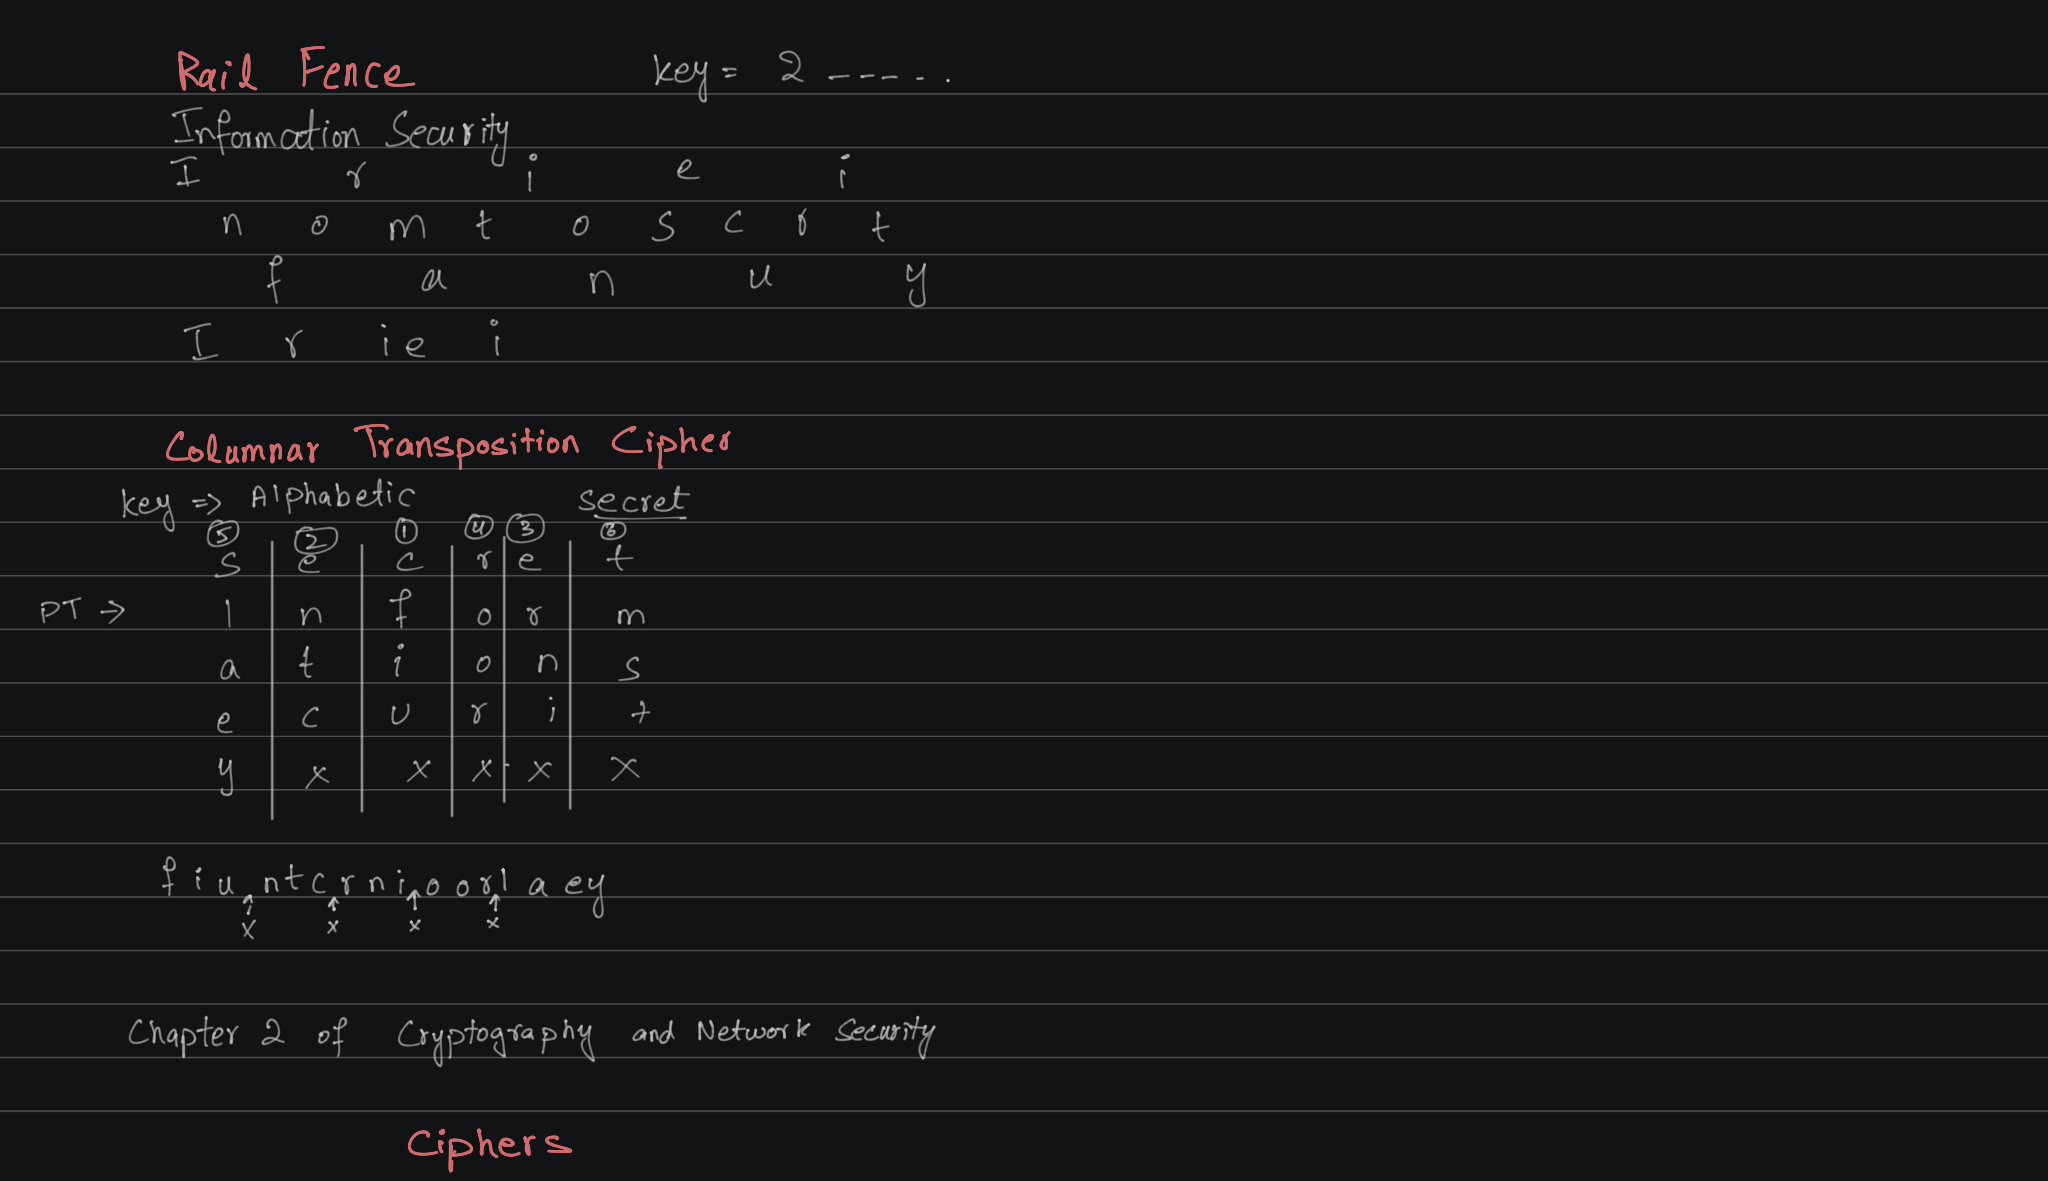 Rail Fence key = 2 -----.
Information Security
I r i e i
n o m t o s c r t
f a n u y
I r i e i
Columnar Transposition Cipher
key => Alphabetic secret
5 2 1 4 3 6
s e c r e t
PT → I n f o r m
a t i o n s
e c u r i t
y x x x x x
f i u n t c r n i o o r l a e y
x x x x
Chapter 2 of Cryptography and Network Security
Ciphers